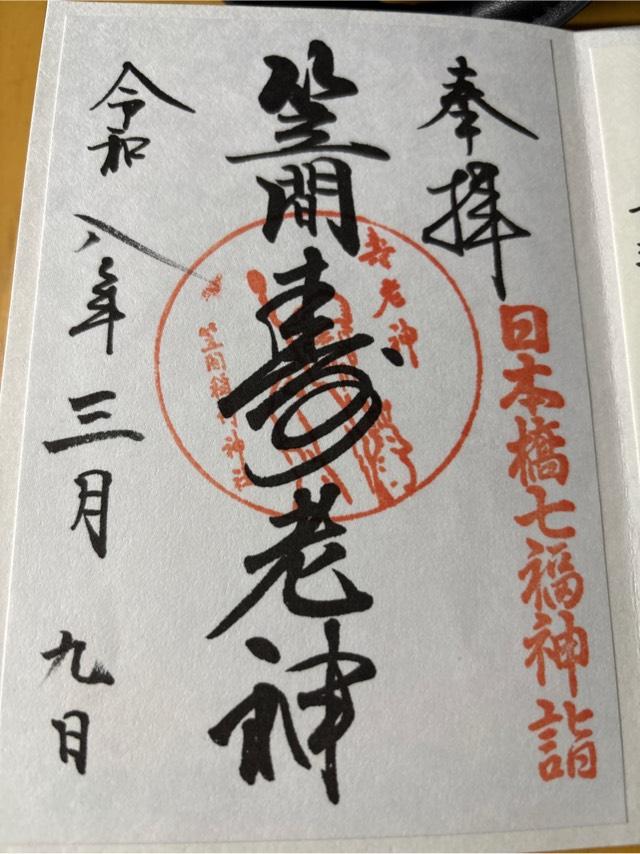 奉拝
日本橋七福神詣
笠間寿老神
寿老神
笠間稲荷神社
令和八年三月九日